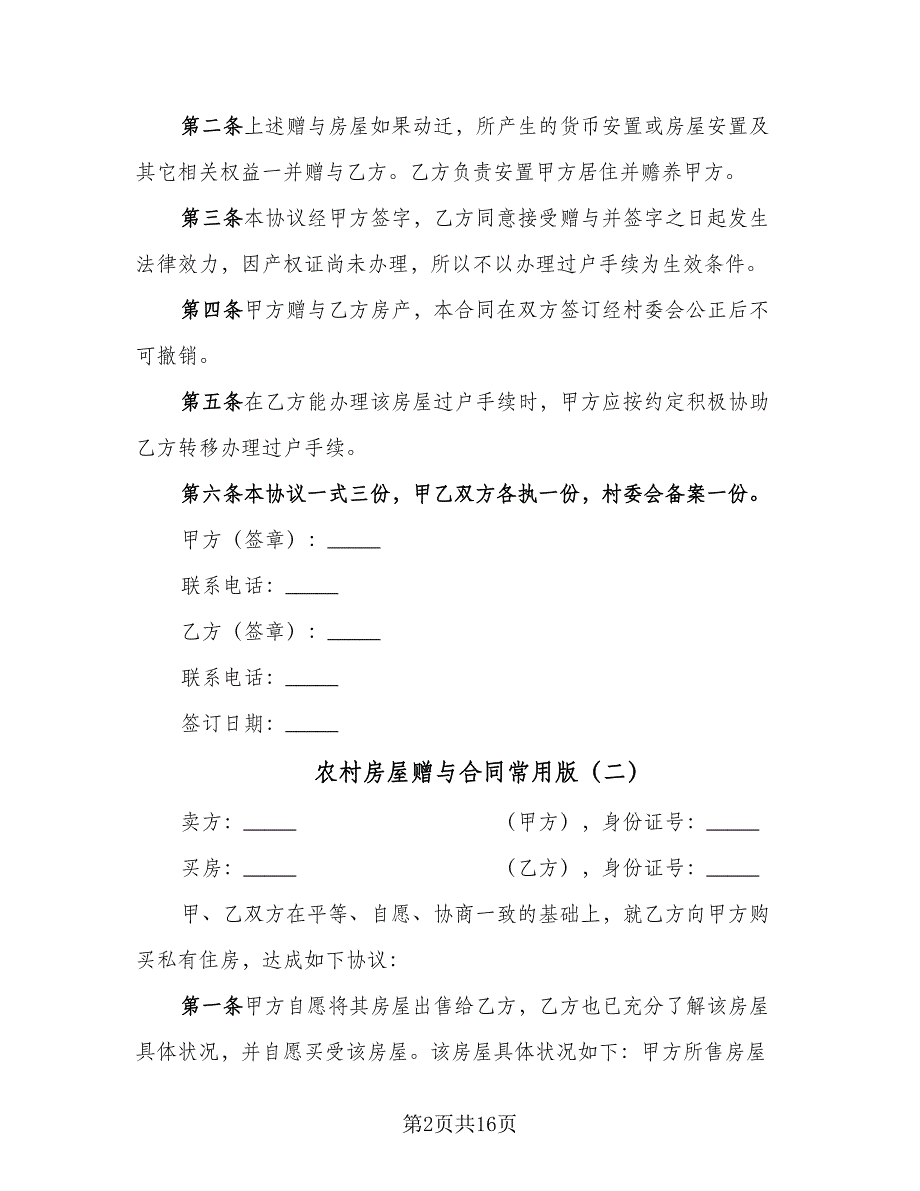 第二条上述赠与房屋如果动迁，所产生的货币安置或房屋安置及
其它相关权益一并赠与乙方。乙方负责安置甲方居住并赡养甲方。
第三条本协议经甲方签字，乙方同意接受赠与并签字之日起发生
法律效力，因产权证尚未办理，所以不以办理过户手续为生效条件。
第四条甲方赠与乙方房产，本合同在双方签订经村委会公正后不
可撤销。
第五条在乙方能办理该房屋过户手续时，甲方应按约定积极协助
乙方转移办理过户手续。
第六条本协议一式三份，甲乙双方各执一份，村委会备案一份。
甲方（签章）：_____
联系电话：_____
乙方（签章）：_____
联系电话：_____
签订日期：_____
农村房屋赠与合同常用版（二）
卖方：_____ （甲方），身份证号：_____
买房：_____ （乙方），身份证号：_____
甲、乙双方在平等、自愿、协商一致的基础上，就乙方向甲方购
买私有住房，达成如下协议：
第一条甲方自愿将其房屋出售给乙方，乙方也已充分了解该房屋
具体状况，并自愿买受该房屋。该房屋具体状况如下：甲方所售房屋
第2页共16页